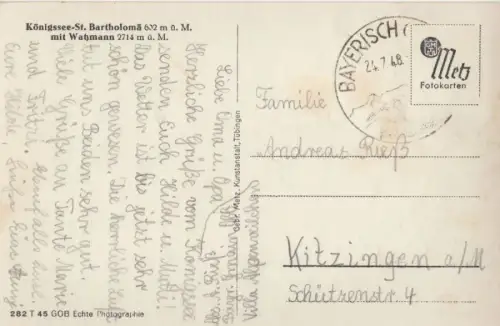 Königssee-St. Bartholomä 602 m ü. M.
mit Watzmann 2714 m ü. M.
Liebe Oma u. Opa
Herzliche Grüße vom Königssee
senden Euch Hilde u. Mutti!
Das Wetter ist bis jetzt sehr
schön gewesen. Die herrliche Luft
tut uns Beiden sehr gut.
Viele Grüße an Tante Marie
und
Eure Hilde,
282 T 45 GOB Echte Photographie
Gebr. Metz, Kunstanstalt, Tübingen
BAYERISCH
24.7.48
Metz
Fotokarten
Familie
Andreas Rieß
Kitzingen a/M
Schützenstr. 4